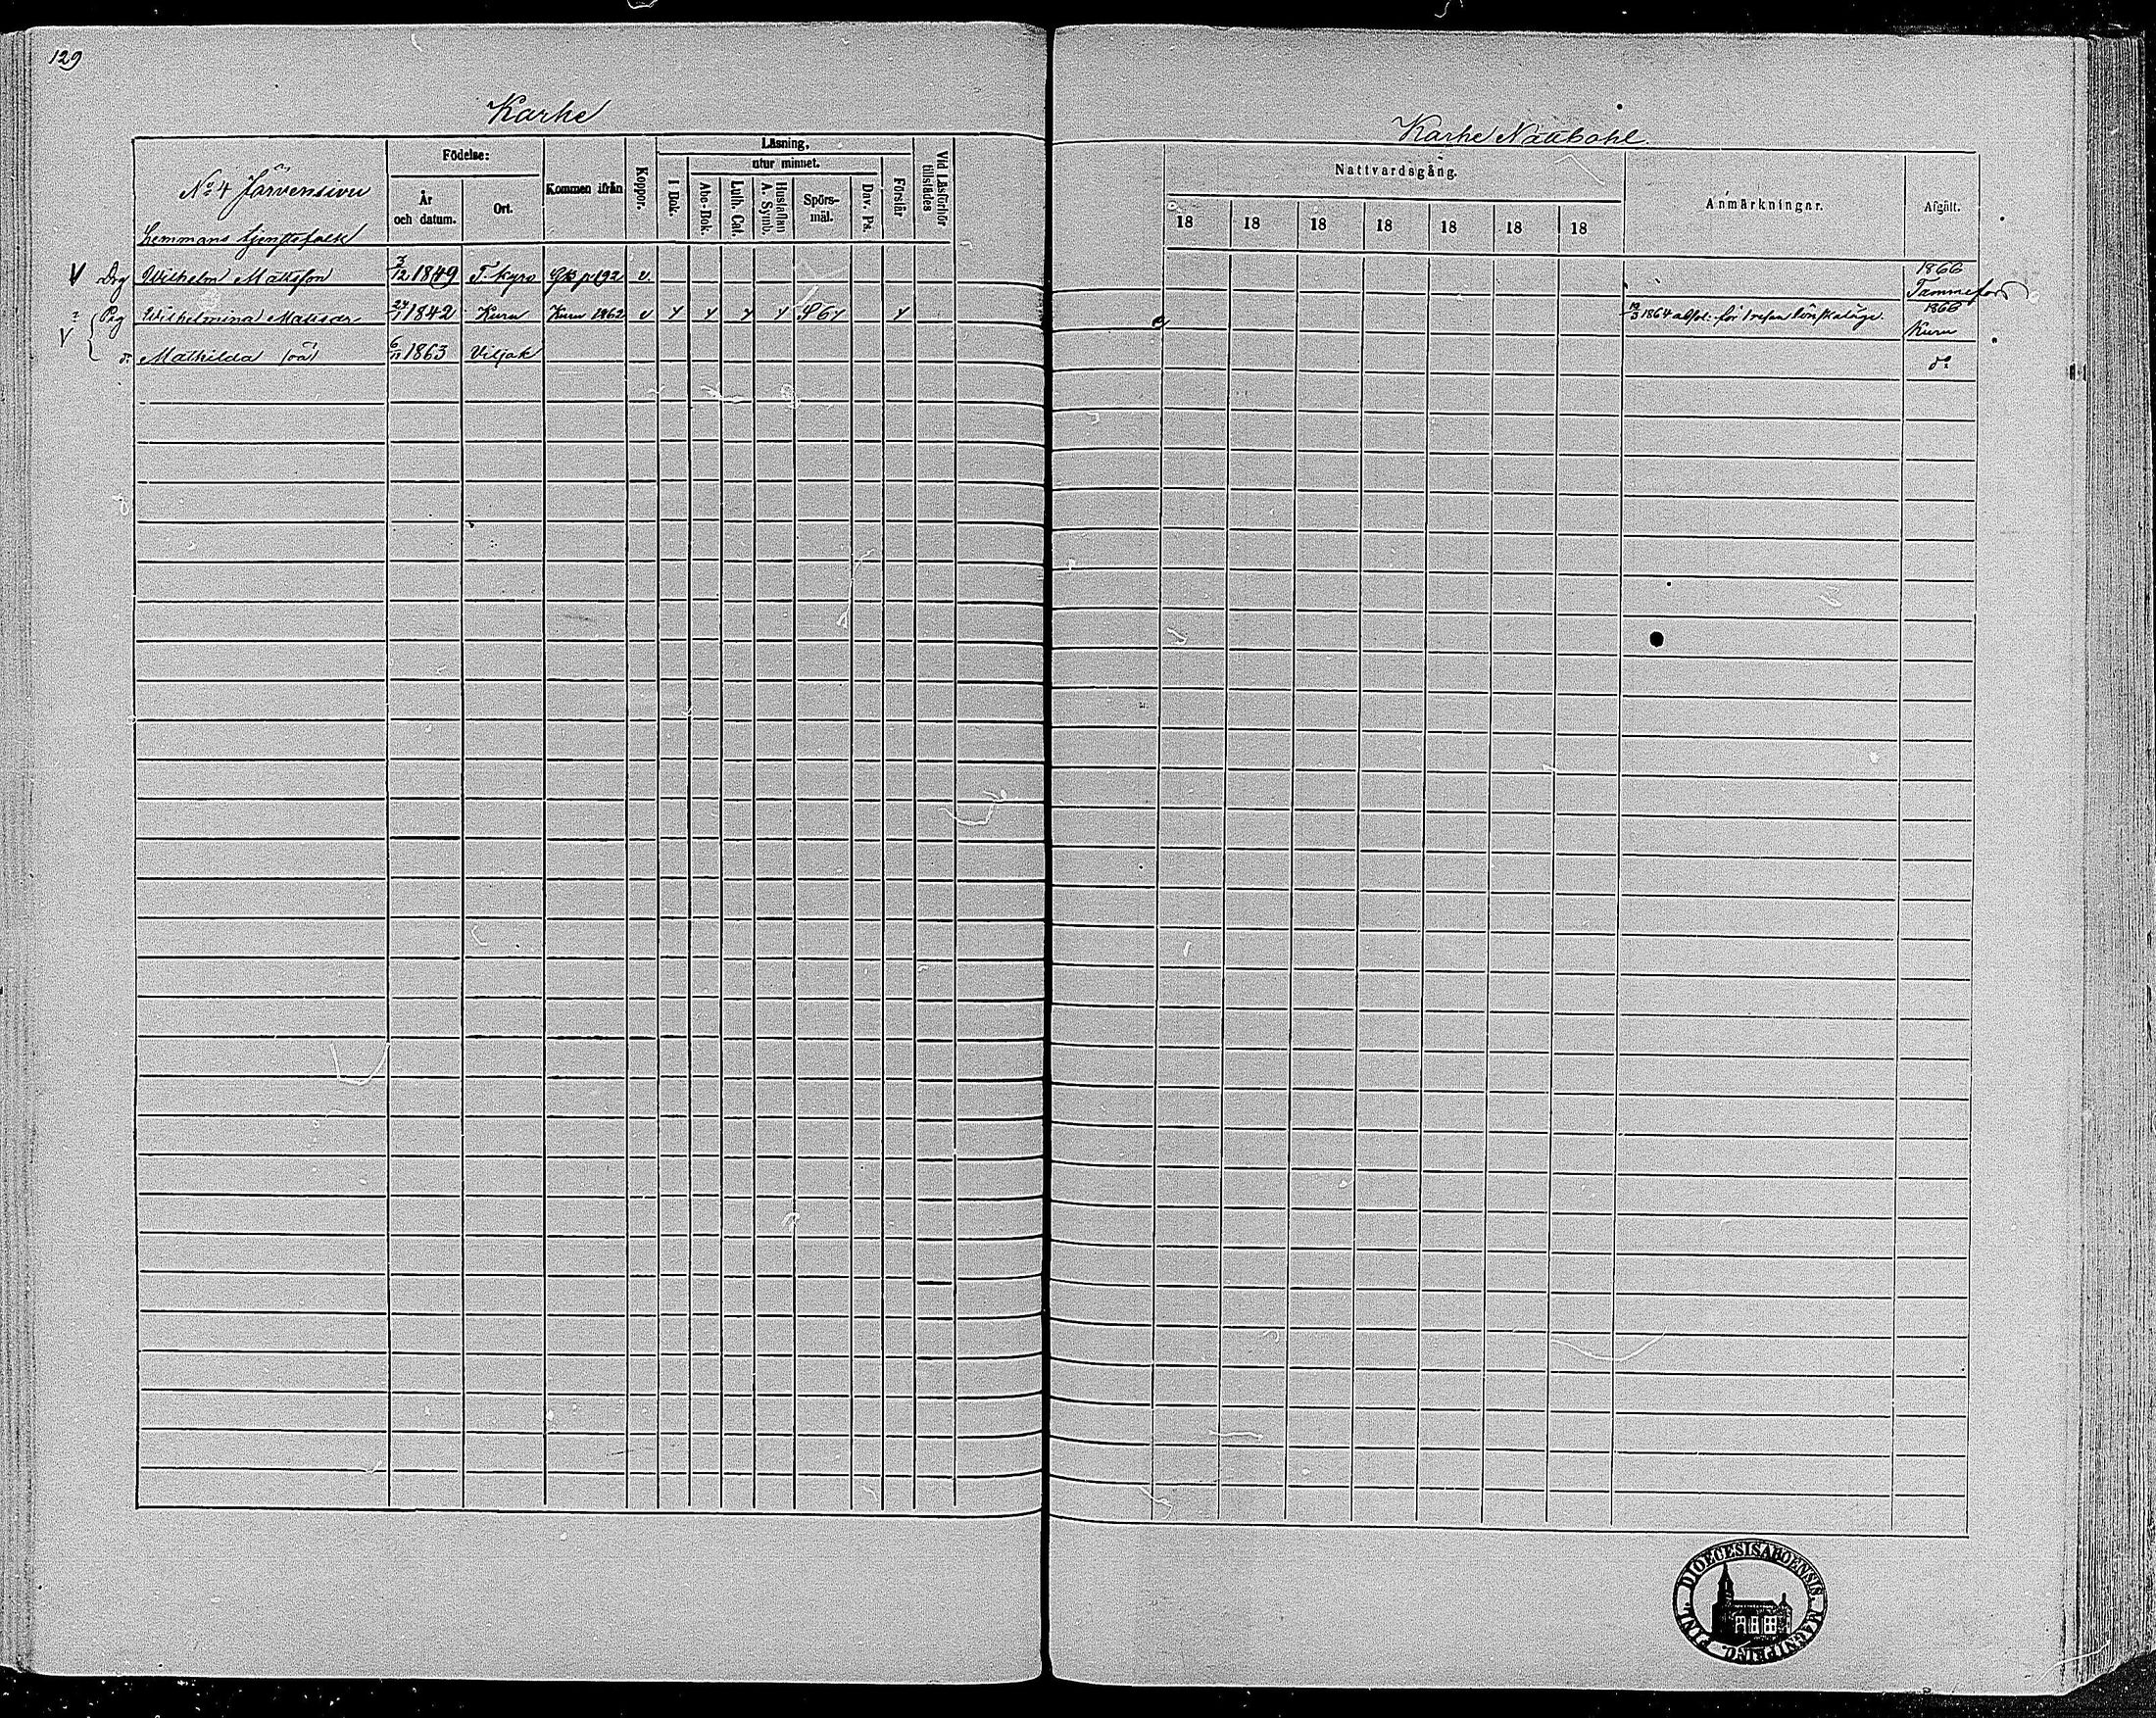 129
Karhe
Karhe Nattbohl.
Födelse:
Läsning,
utur minnet.
Nattvardsgång.
No 4 Järvensivu
År och datum.
Ort.
Kommen ifrån
Koppor.
I Bok.
Abc-Bok.
Luth. Cat.
Hustaflan A. Symb.
Spörs-mål.
Dav. Ps.
Förstår
Vid Läsförhör tillstädes
18 18 18 18 18 18 18
Anmärkningar.
Afgått.
Hemmans tjenstefolk
V Drg Wilhelm Mattsson 3/12 1849 T. kyro p 192 v. 1866 Tammefors
Pig Wilhelmina Mattsdr 24/1 1842 Kuru Kuru 1862 v 1864 absol: för 1 resan lönskaläge. 1866 Kuru
V do Mathilda (oä) 6/11 1863 Viljak do
FINL. DIOECESIS ABOENSIS MAGNI PRINC.